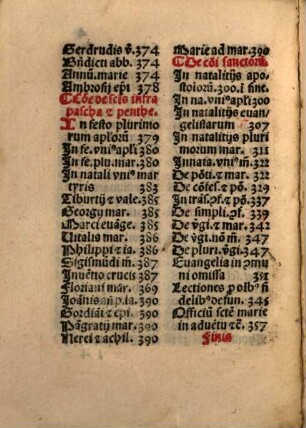 Gerdrudis v̄. 374
Bn̄dicti abb. 374
Annū. marie 374
Ambrosij ep̄i 378
Cōe de scīs infra
pascha ⁊ penthe.
In festo plurimo
rum apl̄orū 379
In fe. vniꝰ apl̄i 380
In fe. plu. mar. 380
In natali vniꝰ mar
tyris 383
Tiburtij ⁊ vale. 385
Georgij mar. 385
Marci euāge. 385
Uitalis mar. 386
Philippi ⁊ ia. 386
Sigismūdi m̄. 387
Inuētio crucis 387
Floriani mar. 390
Joānis añ. p. la. 390
Gordiāi ⁊ epi. 390
Pāgratij mar. 390
Nerei ⁊ achil. 390
Marie ad mar. 390
De cōi sanctorū.
In natalitijs apo-
stolorū. 300. ī fine.
In na. vniꝰ apl̄i 300
In natalitijs euan-
gelistarum 307
In natalitijs pluri
morum mar. 311
In nata. vniꝰ m̄. 322
De pōti. ⁊ mar. 322
De cōfes. ⁊ pō. 329
In trās. pōf. ⁊ 337
De simpli. 9f. 339
De v̄gi. ⁊ mar. 342
De v̄gi. nō m̄. 347
De pluri. v̄gi. 347
Euangelia in ꝯmu
ni omissa 351
Lectiones ꝓ lobꝰ fi
delibꝰ defun. 345
Officiū sctē marie
in aduētu ⁊c̄. 357
Finis